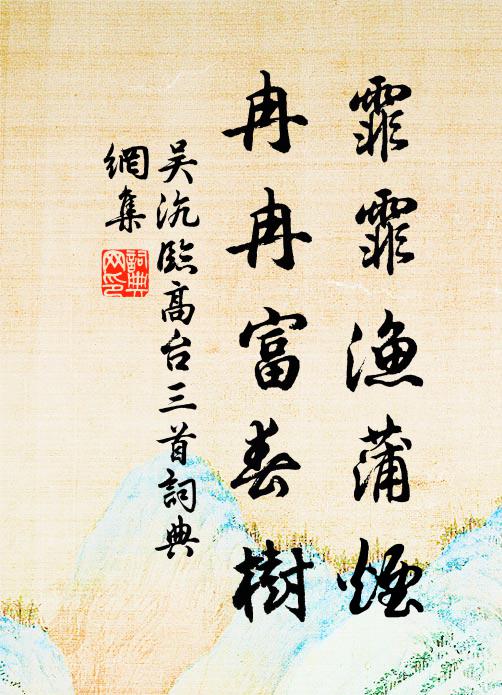 霏霏漁蒲煙
冉冉富春樹
吴沆臨高台三首詞典
網集
詞典网印